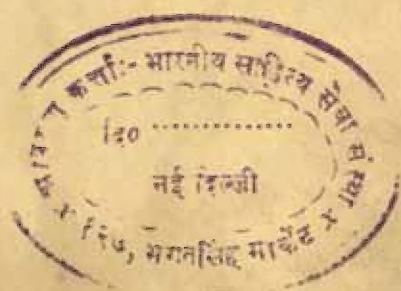 कर्त्ता:- भारतीय साहित्य सेवा संस्था x
दि० ..............
नई दिल्ली
x १२७, भगतसिंह मार्केट x